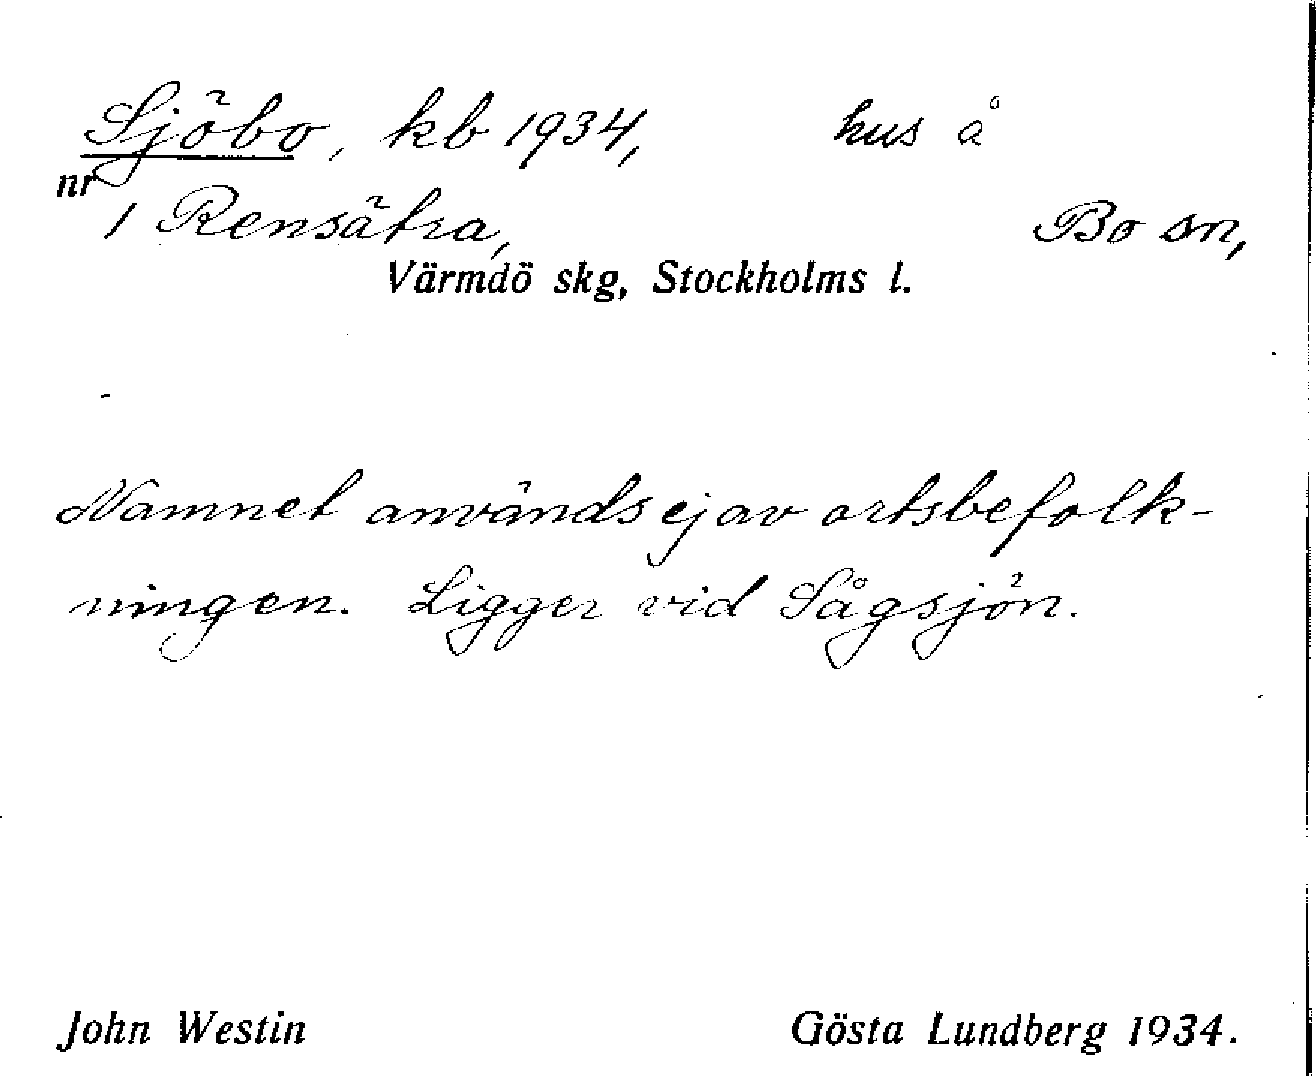 Sjöbo, kb 1934, hus å
nr 1 Rensätra, Bo sn,
Värmdö skg, Stockholms l.
Namnet användes ej av ortsbefolk-
ningen. Ligger vid Sågsjön.
John Westin Gösta Lundberg 1934.